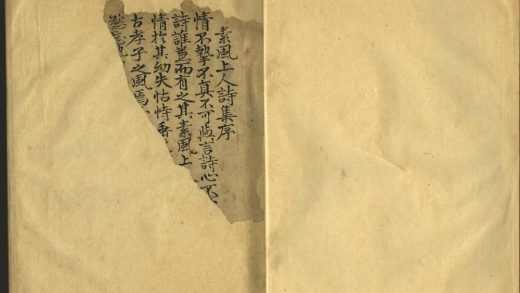 素風上人詩集序
情不摯不真不可與言詩心不
詩誰
而有之其素風上
情於其幼失怙恃
古孝子之風焉